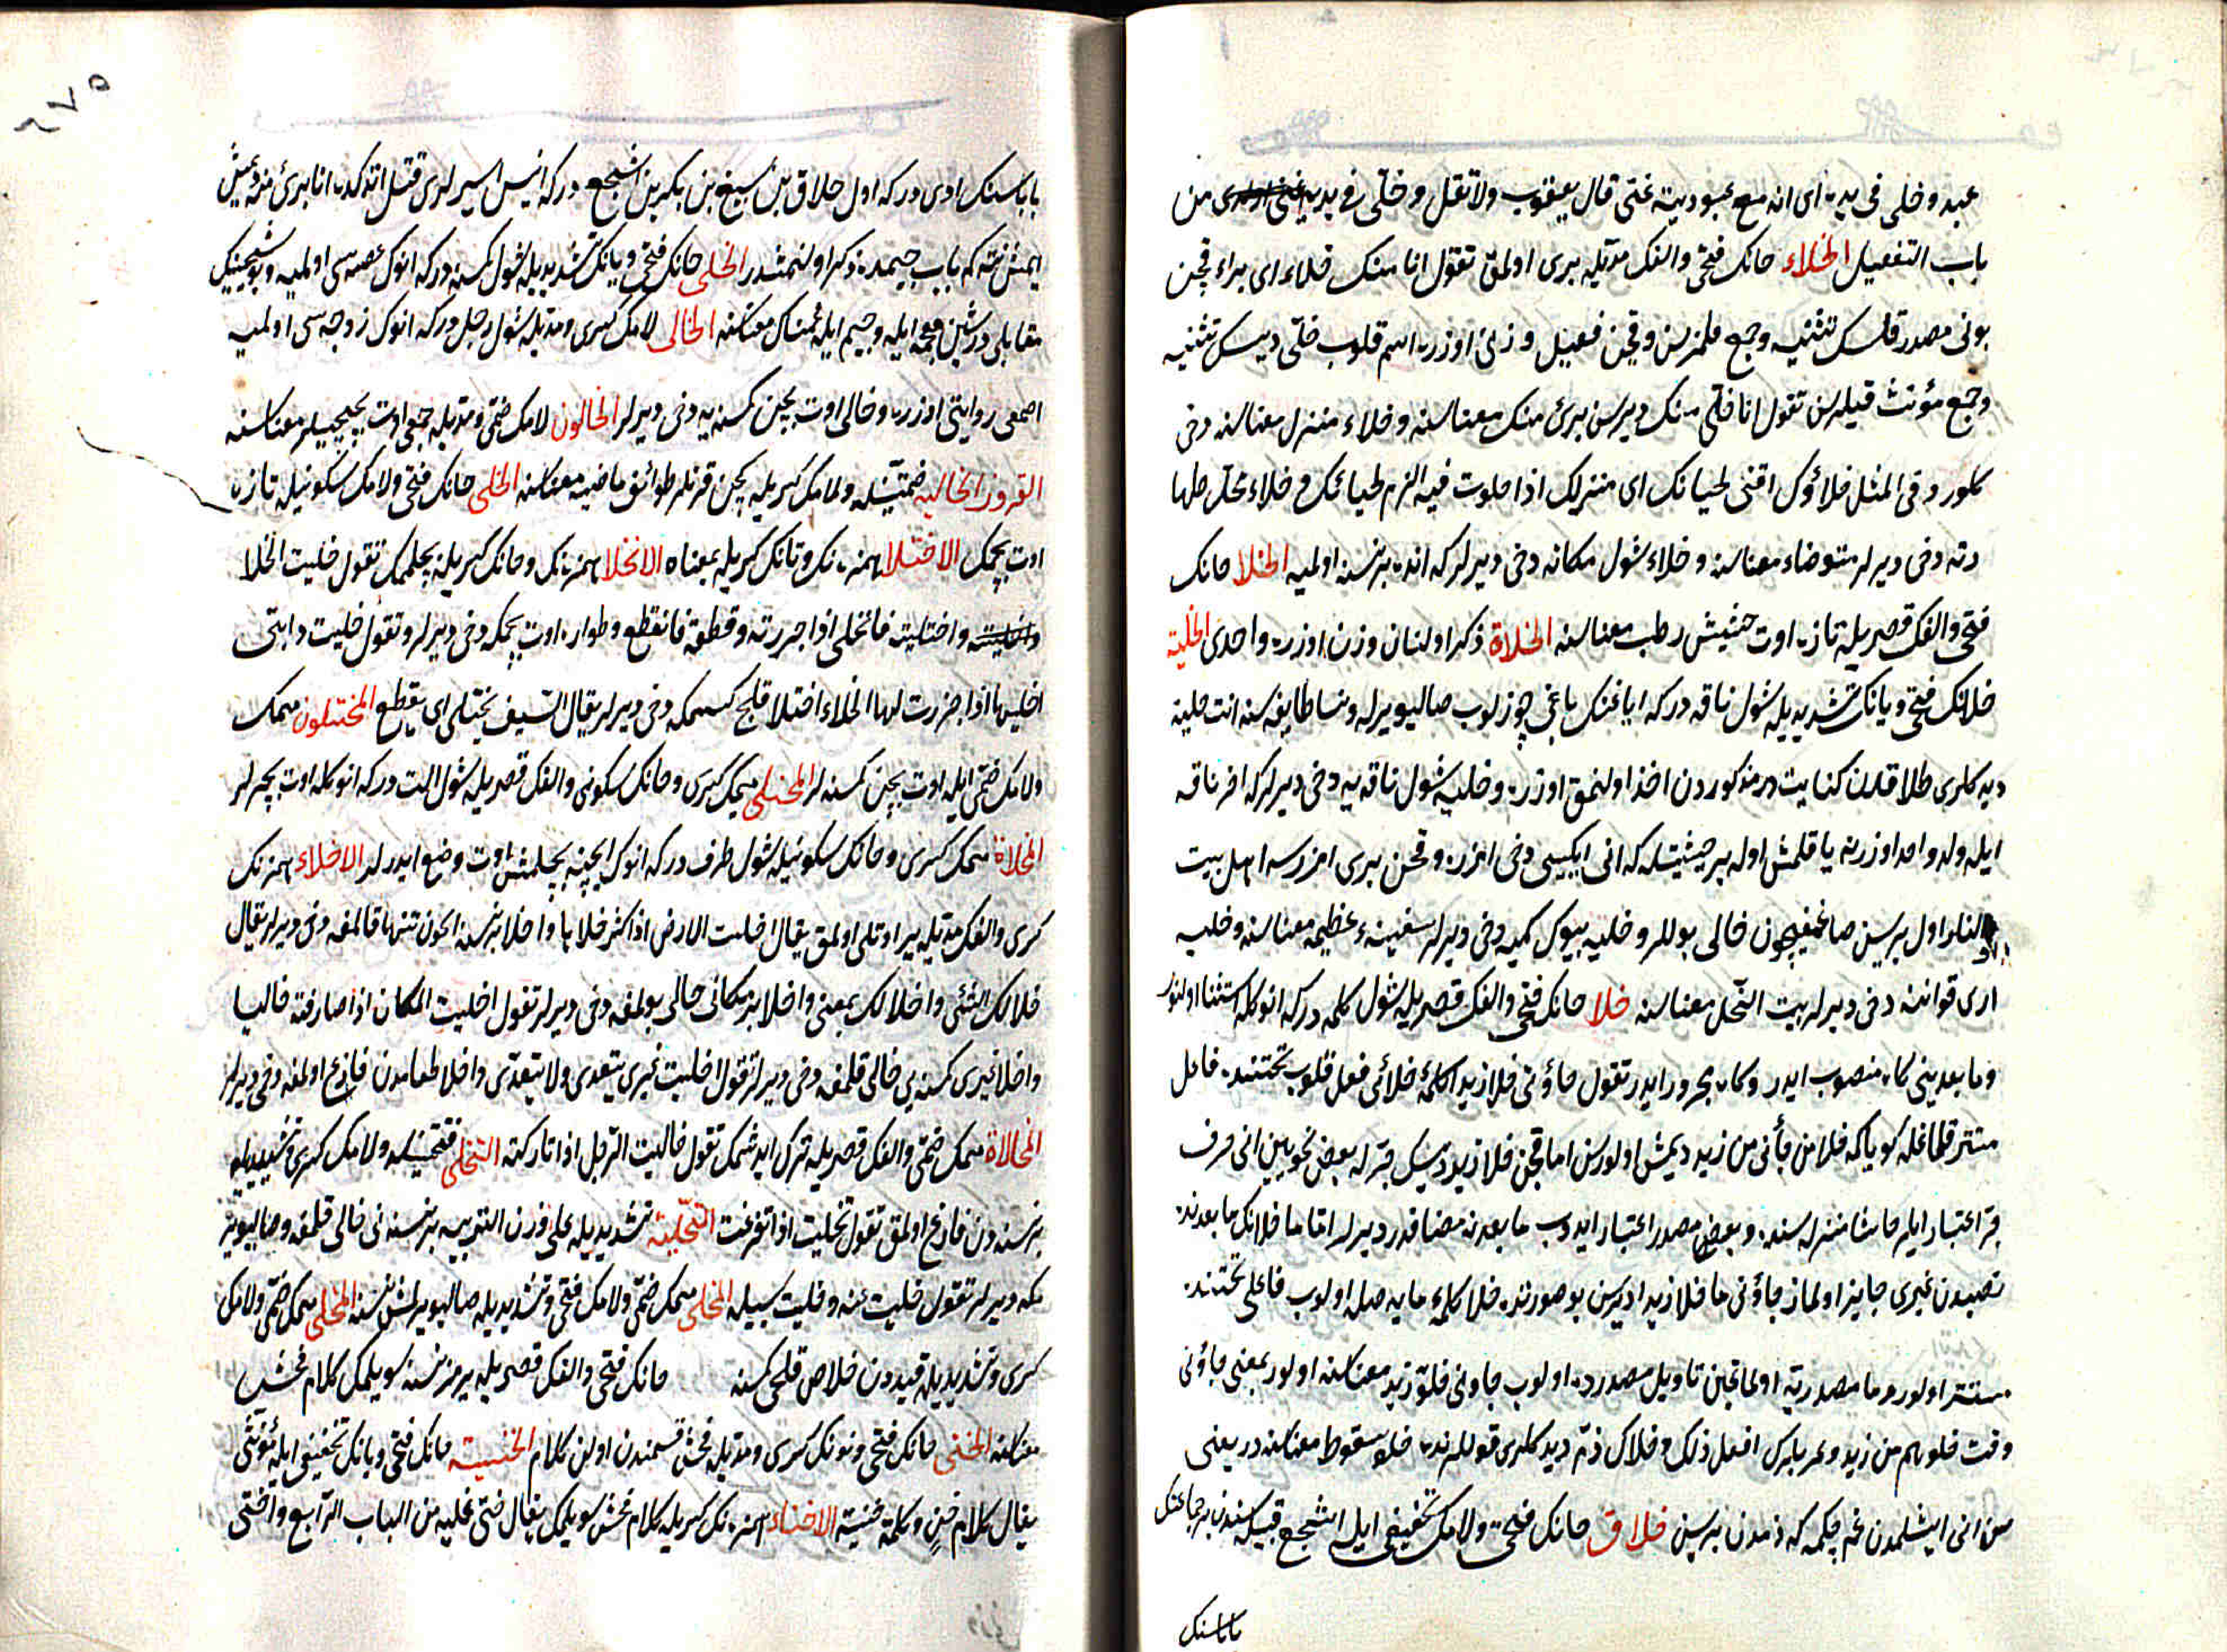 عبد وخلى فى يده اى انه مع عبوديته غنى قال يعقوب ولا تقل وخلّى فى يديه من
باب التفعيل الخلاء خانك فتحى والفك مديله برى اولمق تقول انا منك خلاء اى براء قچن
بونى مصدر قلسك تثنيه وجمع قلمزسن وقچن فعيل وزنى اوزره اسم قلوب خلّى ديسك تثنيه
وجمع مؤنث قيلرسن تقول انا خلّى منك ديرسن برئ منك معناسنه وخلاء منزل معناسنه دخى
كلور وفى المثل خلاؤك اقنى لحيائك اى منزلك اذا خلوت فيه الزم لحيائك و خلاء محلّ طها
رته دخى ديرلر متوضاء معناسنه وخلاء شول مكانه دخى ديرلر كه انده بر نسنه اولميه الخلا خانك
فتحى والفك قصريله تازه اوت حشيش رطب معناسنه الخلاة ذكر اولنان وزن اوزره واحدى الخلية
خانك فتحى ويانك تشديديله شول ناقه دركه اياغنك باغى چوزلوب صاليويرله ونسا طايفه سنه انت خلية
ديدكلرى طلاقدن كنايت در مذكوردن اخذ اولنمق اوزره وخليه شول ناقه يه دخى ديرلر كه اخر ناقه
ايله ولد واحد اوزرينه ياقلمش اوله بر حيثيتله كه انى ايكيسى دخى امزره وقچن برى امزرسه اهل بيت
اول برسين صاغمغيچون خالى بوللر وخليه بيوك كميه دخى ديرلر سفينهء عظيمه معناسنه وخليه
ارى قواننه دخى ديرلر بيت النحل معناسنه خلا خانك فتحى والفك قصريله شول كلمه دركه انوكله استثنا اولنور
ومابعدينى كاه منصوب ايدر وكاه مجرور ايدر تقول جاؤنى خلا زيدا كلمهء خلائى فعل قلوب تحتنده فاعل
مستتر قلماغله كويا كه خلا من جأنى من زيد ديمش اولورسن اما قچن خلا زيد ديسك جرله بعض نحويين انى حرف
جر اعتبار ايلر حاشا منزله سنده وبعض مصدر اعتبار ايدوب مابعدنه مضافدر ديرلر اما ما خلانك مابعدنده
نصبدن غيرى جايز اولماز جاؤنى ما خلا زيدا ديرسن بو صورتده خلا كلمهء مايه صله اولوب فاعلى تحتنده
مستتر اولور وما مصدريه اولماغين تاويل مصدرده اولوب جاونى خلوّ زيد معناسنه اولور بمعنى جاؤنى
وقت خلوهم من زيد وعربلرك افعل ذلك وخلاك ذم ديدكلرى قوللرنده خلا سقوط معناسنه در يعنى
سن انى ايشلمدن غم چكمه كه ذمدن بريسن خلاق خانك فتحى ولامك تخفيفى ايله اشجع قبيله سندن بر جماعتك
باباسنك
باباسنك اودى دركه اول خلاق بن سبيع بن بكر بن اشجع دركه انيس اسيرلرى قتل اتدكده انا برئ منه ديمش
ايمش نته كم باب جيمده ذكر اولنمشدر الخلى خانك فتحى ويانك تشديديله شول كمسنه دركه انوك غصه سى اولميه وبو شجينك
مقابلى در شين معجمه ايله وجيم ايله غمناك معناسنه الخالى لامك كسرى ومديله شول رجل دركه انوك زوجه سى اولميه
اصمعى روايتى اوزره وخالى اوت بچن كمسنه يه دخى ديرلر الخالون لامك ضمى ومديله جمعى اوت بچيجيلر معناسنه
القرون الخاليه ضمتينله ولامك كسريله كچن قرنلر طوائف ماضيه معناسنه الخلى خانك فتحى ولامك سكونيله تازه
اوت بچمك الاختلا همزه نك وتانك كسريله بمعناه الانخلا همزه نك وخانك كسريله بچلمك تقول خليت الخلا
واختليته فانخلى اذا جررته وقطعته فانقطع وطواره اوت بچمكه دخى ديرلر وتقول خليت دابتى
اخليها اذا جزرت لها الخلاء اختلا قلج كسمكه دخى ديرلر يقال السيف يختلى اى يقطع المختلون ميمك
ولامك ضمى ايله اوت بچن كمسنه لر المخلى ميمك كسرى وخانك سكونى والفك قصريله شول الت دركه انوكله اوت بچرلر
المخلاة ميمك كسرى وخانك سكونيله شول ظرف دركه انوك ايچنه بچلمش اوت وضع ايدرلر الاخلاء همزه نك
كسرى والفك مديله ير اوتلى اولمق يقال اخلت الارض اذا كثر خلاها واخلا بر نسنه ايچون تنها قالمغه دخى ديرلر يقال
خلا لك الشئ واخلا لك بمعنى واخلا بر مكانى خالى بولمغه دخى ديرلر تقول اخليت المكان اذا صادفته خاليا
واخلا غيرى كمسنه يى خالى قلمغه دخى ديرلر تقول اخليت غيرى يتعدى ولا يتعدّى واخلا طعامدن فارغ اولمغه دخى ديرلر
المخالاة ميمك ضمى والفك قصريله ترك ايدشمك تقول خاليت الرجل اذا تاركته التخلى فتحتينله ولامك كسرى وتشديديله
بر نسنه دن فارغ اولمق تقول تخليت اذا تفرغت التخلية تشديديله على وزن التربيه بر نسنه نى خالى قلمغه وصاليوير
مكه ديرلر تقول خليت عنه وخليت سبيله المخلى ميمك ضمى ولامك فتحى وتشديديله صاليويرلمش نسنه المخلى ميمك ضمى ولامك
كسرى وتشديديله قيددن خلاص قلجى كمسنه خانك فتحى والفك قصريله يرمز نسنه سويلمك كلام فحش
معناسنه الخنى خانك فتحى ونونك كسرى ومديله فحش قسمندن اولن كلام الخنية خانك فتحى ويانك تخفيفى ايله مؤنثى
يقال كلام خن وكلمة خنية الاخناء همزه نك كسريله كلام فحش سويلمك يقال خنى عليه من الباب الرابع واخنى